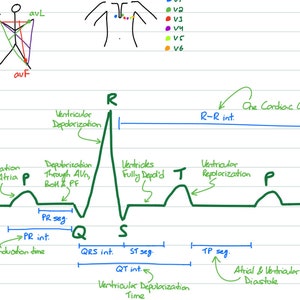 avL
avF
V2
V3
V4
V5
V6
One Cardiac C
R
R-R int.
Ventricular
Depolarization
Depolarisation
Through AVn,
BofH & PF
Ventricles
Fully Depol'd
Ventricular
Repolarization
P
T
P
PR seg.
PR int.
Q
S
QRS int.
ST seg.
TP seg.
QT int.
Ventricular Depolarization
Time
Atrial & Ventricular
Diastole